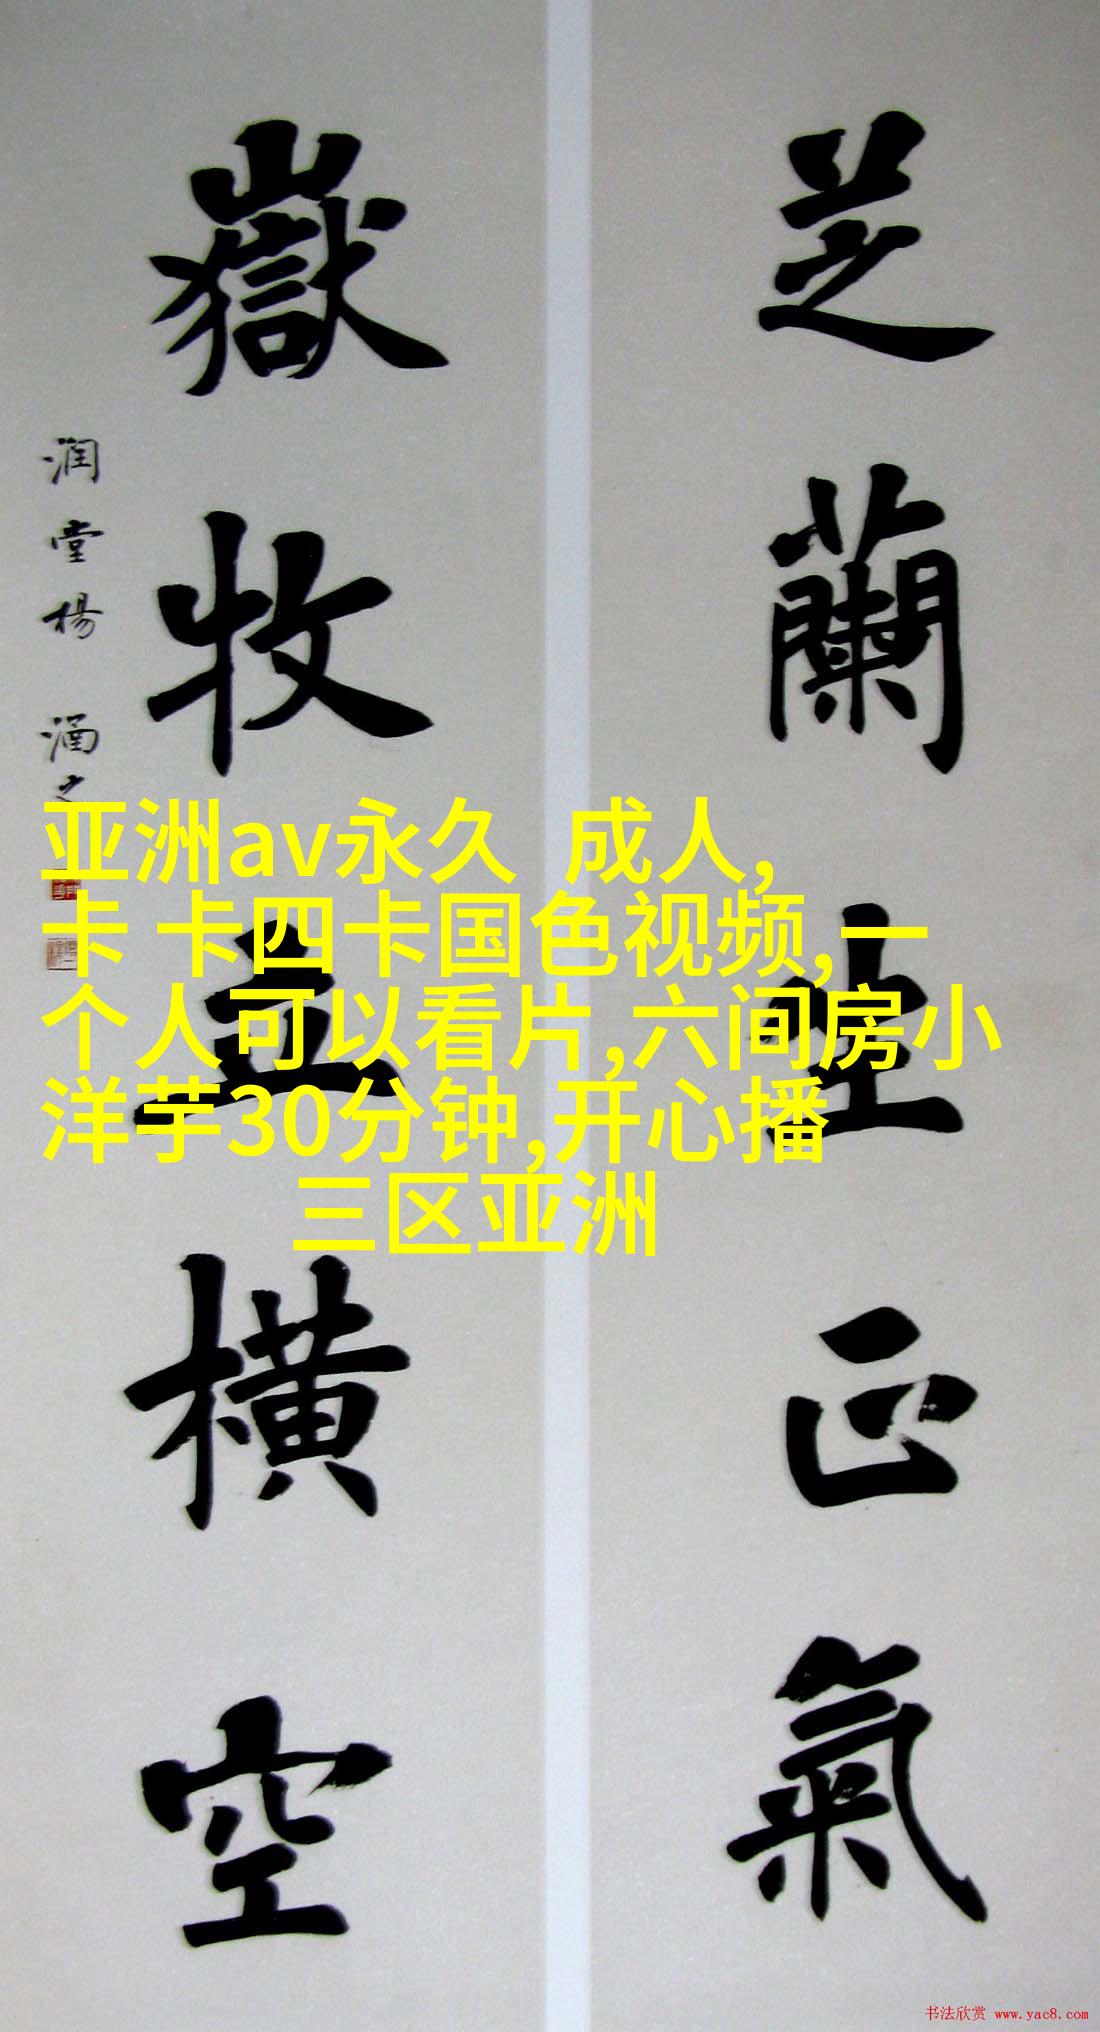 芝蘭生正氣
嶽牧橫空
润堂楊
亚洲av永久 成人,
卡 卡四卡国色视频,一
个人可以看片,六间房小
洋芋30分钟,开心播
三区亚洲
书法欣赏 www.yac8.com